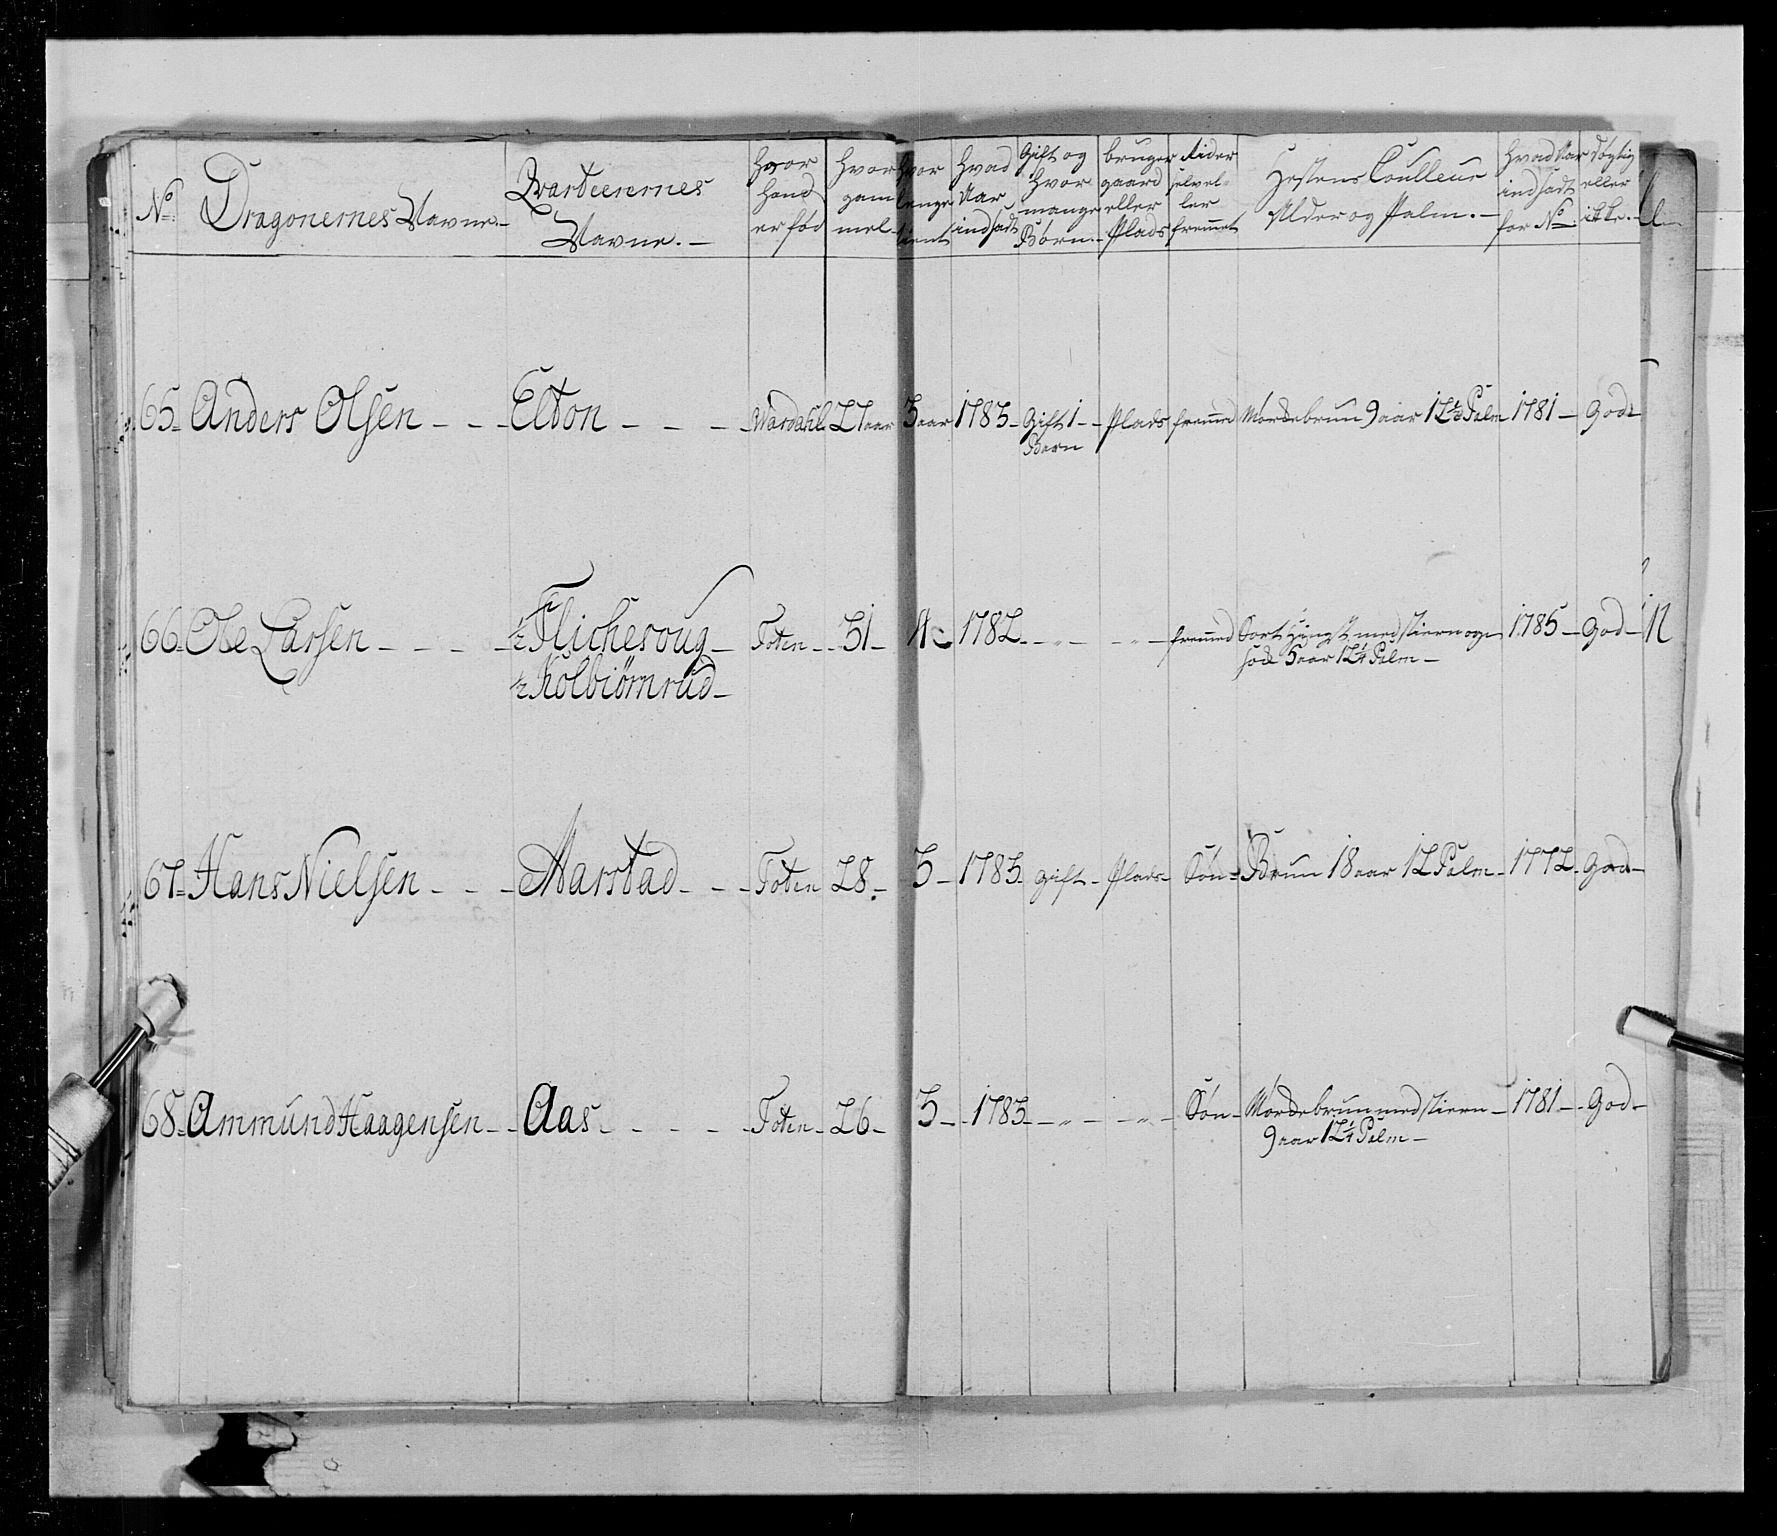 No
Dragonernes Navne.
Qvarteerernes
Navne.
Hvor
hand
er fød
Hvor
gam
mel
Hvor
lenge
tient
Hvad
Aar
indsadt
Gift og
hvor
mange
Børn
bruger
gaard
eller
Plads
Rider
selvel-
ler
fremmet
Hestens Coulleur
Alder og Palm.
Hvad Aar
indsadt
for No
døgtig
eller
ikke.
65. Anders Olsen - - - Elton - - - Wardahl 27 aar 3 aar 1783 - Gift 1 - - Plads fremmed Morkebrun 9 aar 12½ Palm 1781 - God
Barn
66. Ole Larsen - - - - ½ Flichesoug - Toten - - 31 - 4 - 1782 - - " - - " - fremmed Sort Hingst med stiern og 1785 - God -
½ Kolbiørnrud - sok 5 aar 12¼ Palm -
67. Hans Nielsen - - - Aarstad - - - Toten 28. 3 - 1783 - Gift - Plads - Søn - Brun 18 aar 12 Palm - 1772 - God -
68. Ammund Haagensen - - Aas - - - - - Toten - 26 - 3 - 1783 - - " - - " - Søn - Morkebrun med stiern - 1781 - - God -
9 aar 12¼ Palm -